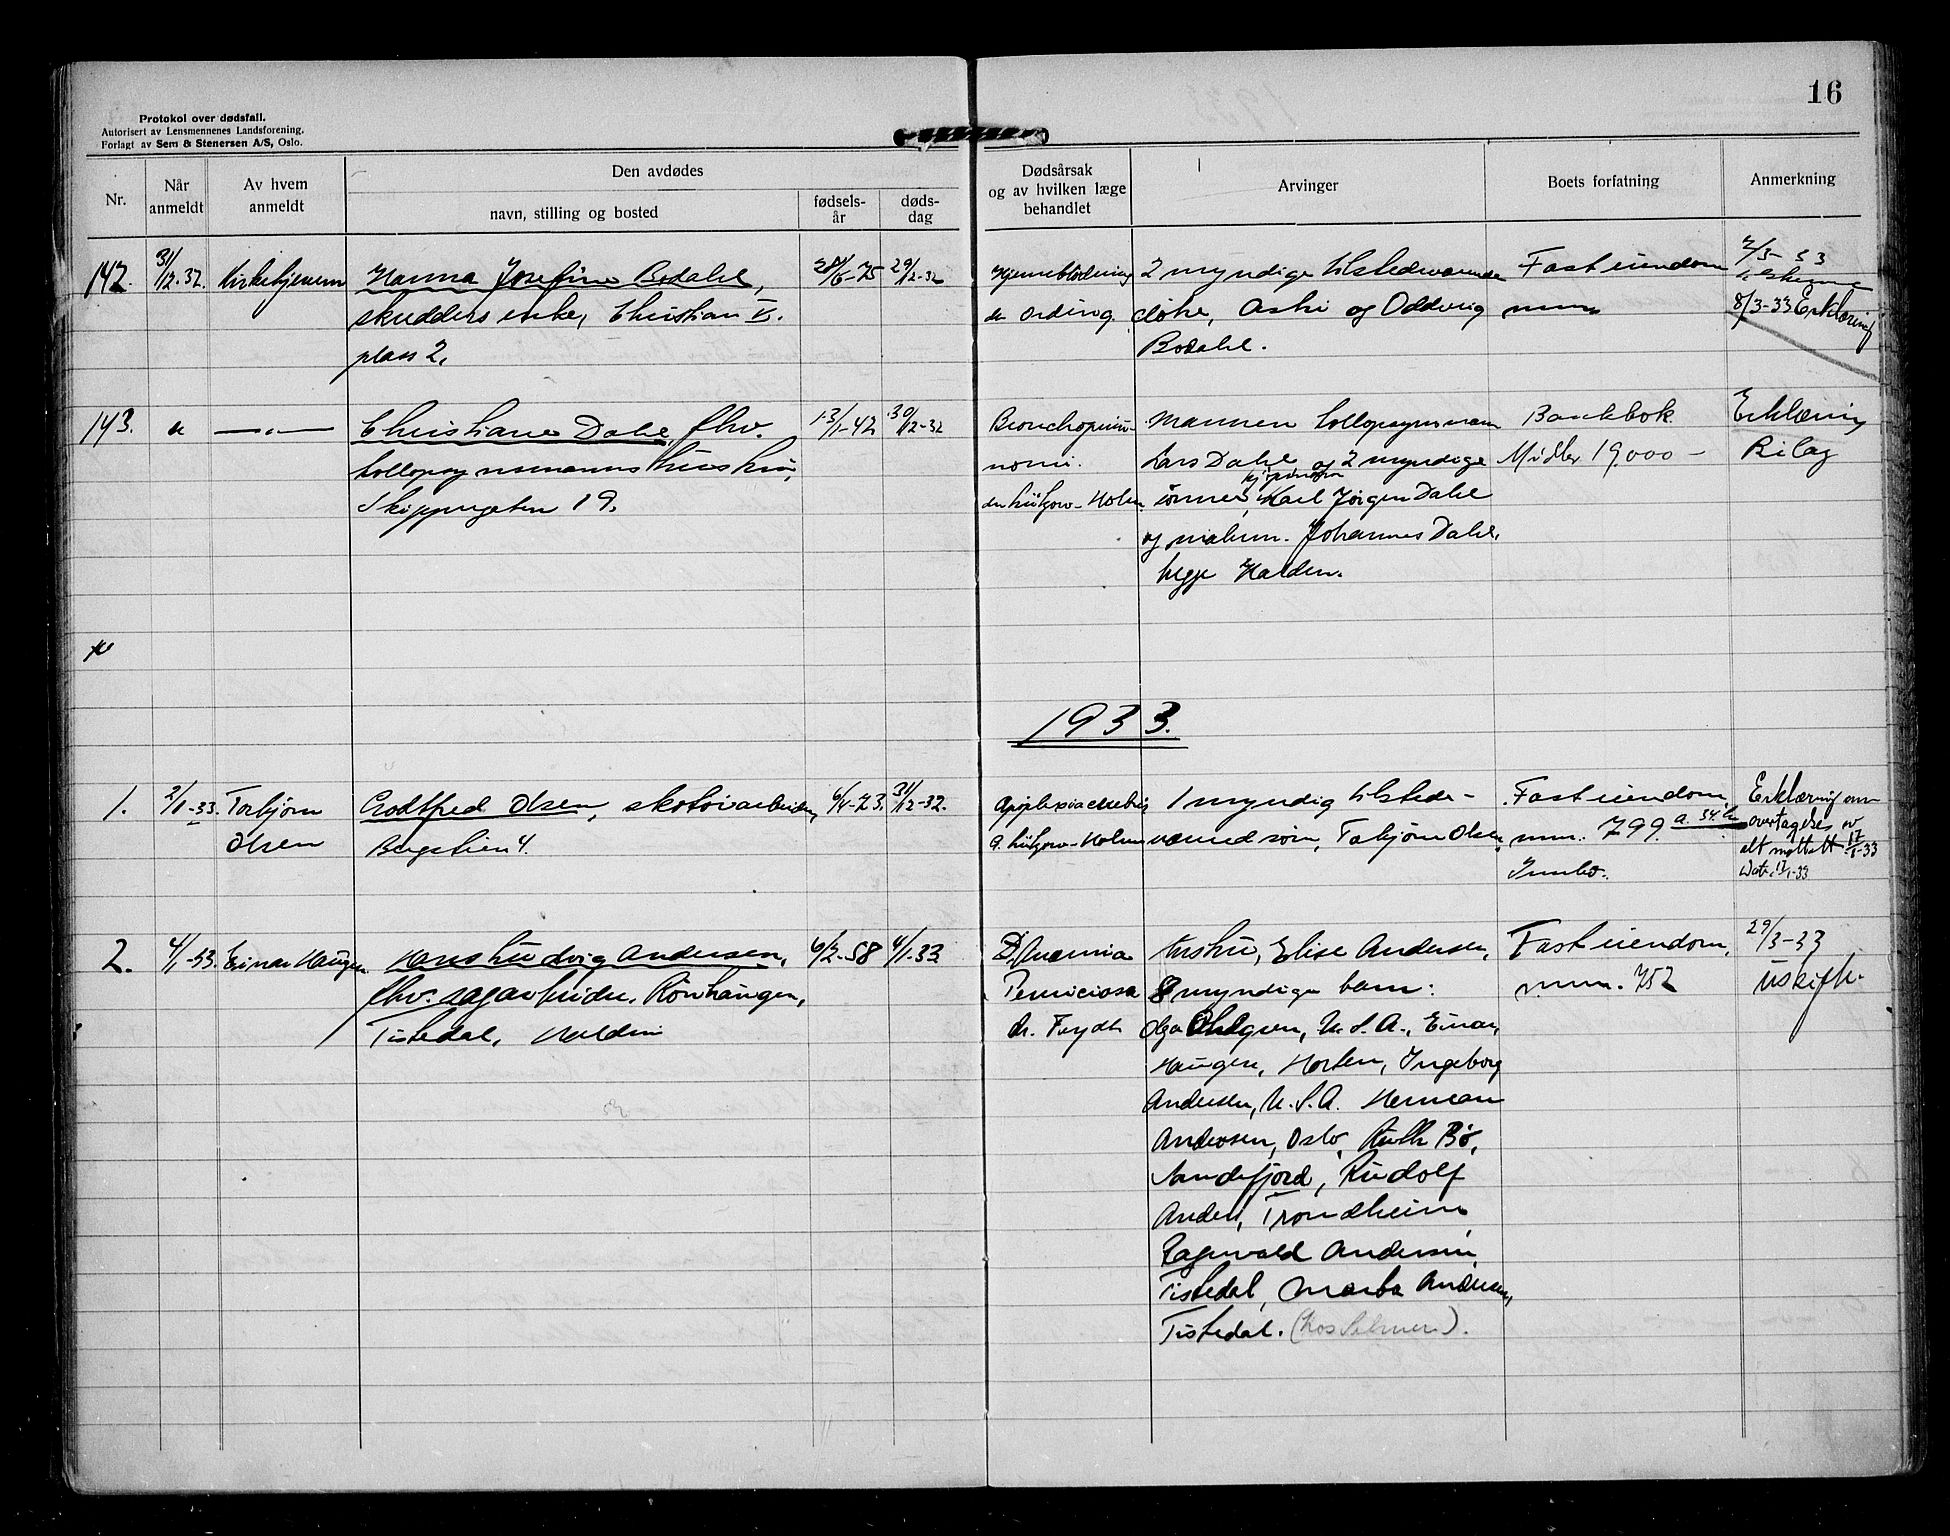 16
Protokol over dødsfall.
Autorisert av Lensmennenes Landsforening.
Forlagt av Sem & Stenersen A/S, Oslo.
Nr.
Når anmeldt
Av hvem anmeldt
Den avdødes
navn, stilling og bosted
fødsels-år
døds-dag
Dødsårsak og av hvilken læge behandlet
Arvinger
Boets forfatning
Anmerkning
142. 31/12-32. Kirketjeneren
Hanna Josefine Bodahl,
skredders enke, Christian V.
plass 2.
29/12-32
Hjerneblødning
dr Ording.
2 myndige tilstedeværende
døtre, Aslu og Oddveig
Bodahl.
Fast eiendom
8/3-33 Erklæring
143. " — " —
Christiane Dahl, fhv.
tolloppsynsmanns hustru,
Skippergaten 19.
13/1-42
30/12-32
Bronchopneu-
moni.
dr Lützow-Holm
Mannen tolloppsynsmann
Lars Dahl og 2 myndige
sønner, Karl Jørgen Dahl
og Johannes Dahl,
begge Halden.
Bankbok
Midler 19.000 -
Erklæring
Bilag
1933.
1. 2/1-33. Torbjørn
Olsen
Godtfred Olsen, skotøiarbeider,
Bergstien 4.
6/4-73.
31/12-32.
Apoplexia cerebri
Lützow-Holm
1 myndig tilstede-
værend sønn, Torbjørn Olsen
Fast eiendom,
mnr. 799.
Innbo.
Erklæring om
overtagelse av
alt mottatt 17/1-33
2. 4/1-33. Einar Haugen
Hans Ludvig Andersen,
fhv. sagarbeider, Rønhaugen,
Tistedal, Halden
6/2-58
4/1-33
Anæmia
Perniciosa
dr. Frydt
Hustru, Elise Andersen,
8 myndige barn:
Olga Ohlgren, U.S.A., Einar
Haugen, Horten, Ingeborg
Andersen, U.S.A. Herman
Andersen, Oslo, Ruth Bø,
Sandefjord, Rudolf
Anders, Trondheim
Ragnvald Andersen
Tistedal, Marta Andersen,
Tistedal. (hos Selmer).
Fast eiendom,
mnr. 752
29/3-33
Uskifte.